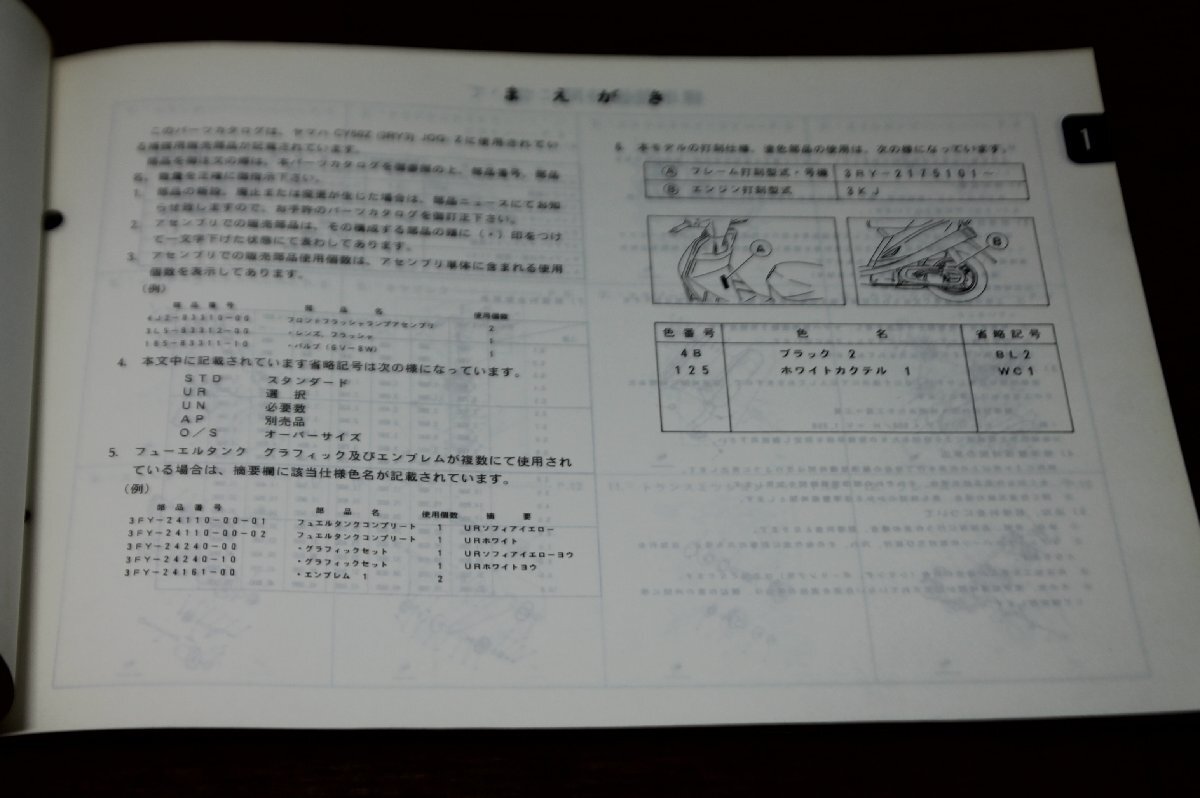 まえがき
このパーツカタログは、ヤマハ CY50Z (3RY3) JOG Zに使用されてい
る補修用販売部品が記載されています。
部品を御注文の際は、本パーツカタログを御参照の上、部品番号、部品
名、数量を正確に御指示下さい。
1. 部品の新設、廃止または変更が生じた場合は、部品ニュースにてお知
らせ致しますので、お手許のパーツカタログを御訂正下さい。
2. アセンブリでの販売部品は、その構成する部品の頭に(・)印をつけ
て一文字下げた状態にて表わしてあります。
3. アセンブリでの販売部品使用個数は、アセンブリ単体に含まれる使用
個数を表示してあります。
(例)
部品番号 部品名 使用個数
4J2-83310-00 フロントフラッシャランプアセンブリ 2
3L5-83312-00 ・レンズ、フラッシャ 1
185-83311-10 ・バルブ(6V-8W) 1
4. 本文中に記載されています省略記号は次の様になっています。
STD スタンダード
UR 選択
UN 必要数
AP 別売品
O/S オーバーサイズ
5. フューエルタンク グラフィック及びエンブレムが複数にて使用され
ている場合は、摘要欄に該当仕様色名が記載されています。
(例)
部品番号 部品名 使用個数 摘要
3FY-24110-00-01 フュエルタンクコンプリート 1 URソフィアイエロー
3FY-24110-00-02 フュエルタンクコンプリート 1 URホワイト
3FY-24240-00 ・グラフィックセット 1 URソフィアイエローヨウ
3FY-24240-10 ・グラフィックセット 1 URホワイトヨウ
3FY-24161-00 ・エンブレム 1 2
6. 本モデルの打刻仕様、塗色部品の使用は、次の様になっています。
A フレーム打刻型式・号機 3RY-2175101~
B エンジン打刻型式 3KJ
A
B
色番号 色名 省略記号
4B ブラック 2 BL2
125 ホワイトカクテル 1 WC1
1